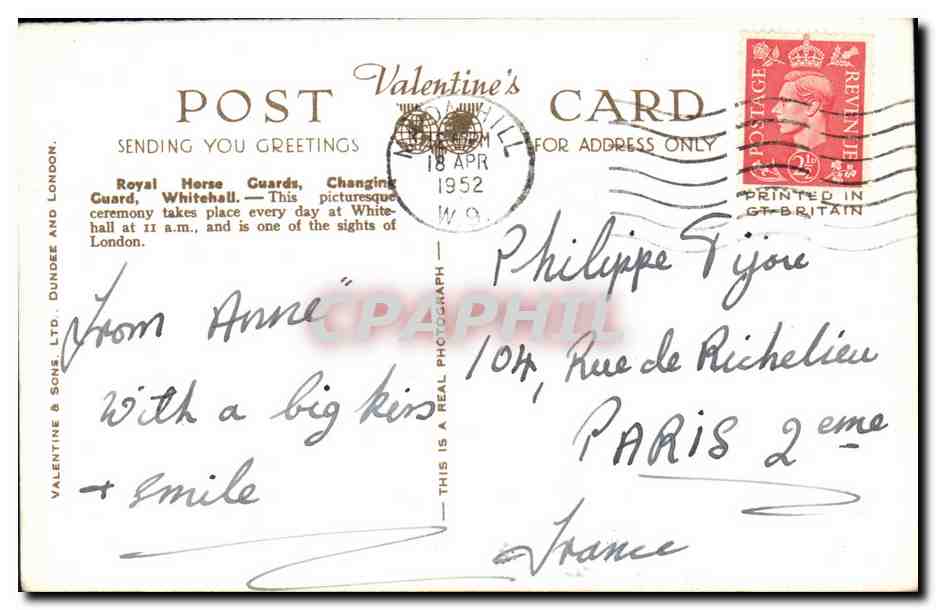 Valentine's
POST CARD
SENDING YOU GREETINGS
FOR ADDRESS ONLY
HILL
18 APR
1952
W.9.
POSTAGE
REVENUE
2½D
PRINTED IN
GT. BRITAIN
Royal Horse Guards, Changing
Guard, Whitehall. — This picturesque
ceremony takes place every day at White-
hall at 11 a.m., and is one of the sights of
London.
VALENTINE & SONS, LTD., DUNDEE AND LONDON.
— THIS IS A REAL PHOTOGRAPH —
From Anne"
With a big kiss
+ smile
Philippe Tijou
104, Rue de Richelieu
PARIS 2eme
France
CPAPHIL